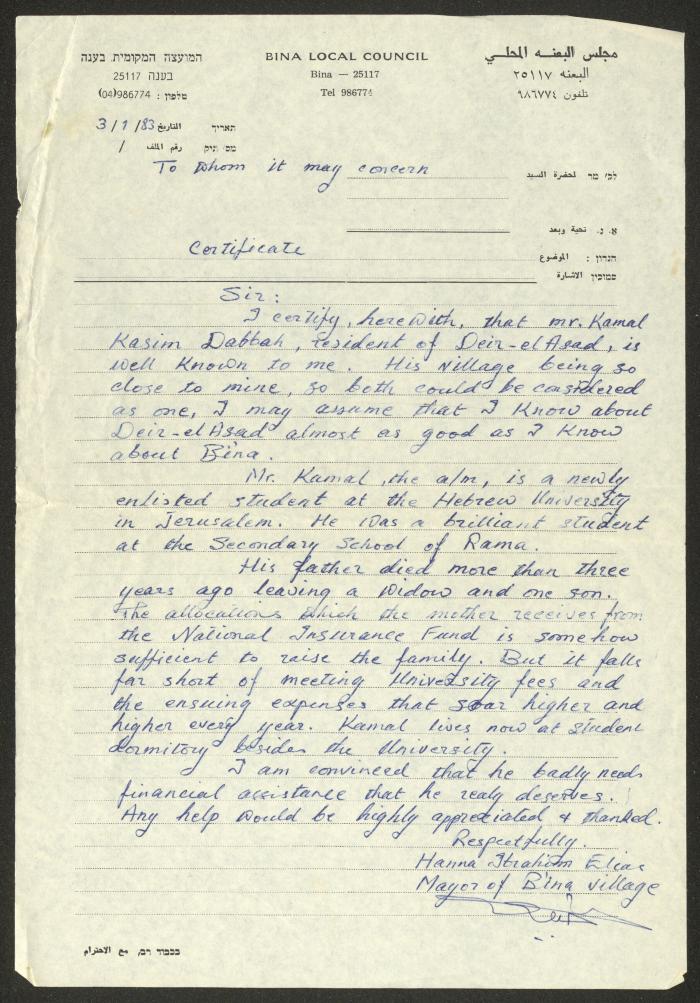 המועצה המקומית בענה
בענה 25117
טלפון : 986774(04)
BINA LOCAL COUNCIL
Bina — 25117
Tel 986774
مجلس البعنه المحلي
البعنه ٢٥١١٧
تلفون ٩٨٦٧٧٤
תאריך التاريخ 3/1/83
מס׳ תיק رقم الملف /
לכ/ מר لحضرة السيد To whom it may concern
א. נ. تحية وبعد
הנדון : الموضوع Certificate
סמוכין الاشارة
Sir:
I certify, herewith, that mr. Kamal
Kasim Dabbah, resident of Deir-el Asad, is
well known to me. His village being so
close to mine, so both could be considered
as one, I may assume that I know about
Deir-el Asad almost as good as I know
about Bina.
Mr. Kamal, the a/m, is a newly
enlisted student at the Hebrew University
in Jerusalem. He was a brilliant student
at the Secondary School of Rama.
His father died more than three
years ago leaving a widow and one son.
The allocations which the mother receives from
the National Insurance Fund is somehow
sufficient to raise the family. But it falls
far short of meeting University fees and
the ensuing expenses that soar higher and
higher every year. Kamal lives now at student
dormitory besides the University.
I am convinced that he badly needs
financial assistance that he realy deserves.
Any help would be highly appreciated & thanked.
Respectfully.
Hanna Ibrahim Elias
Mayor of B'ina village
בכבוד רב, مع الاحترام